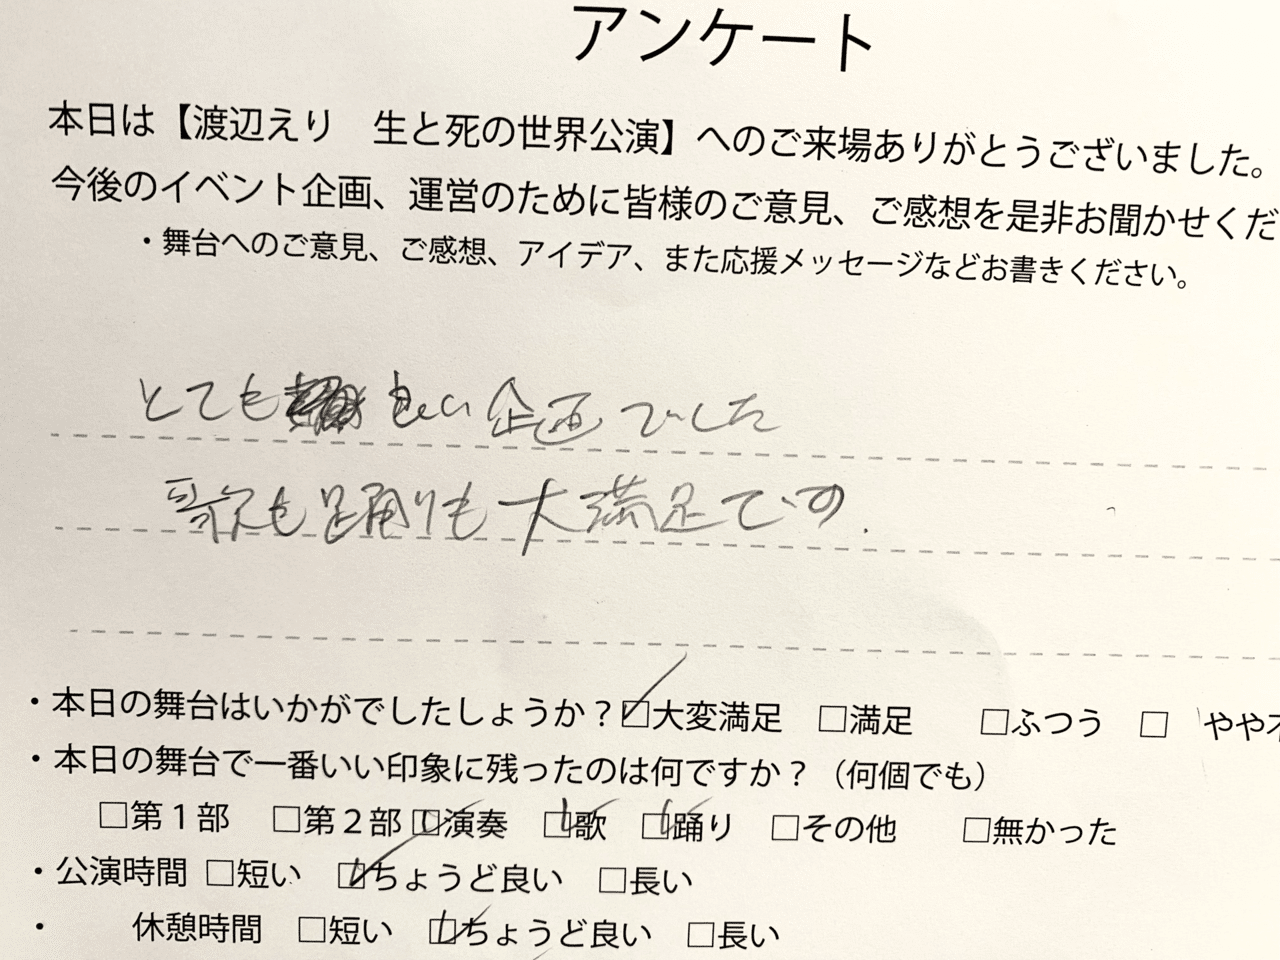 アンケート
本日は【渡辺えり　生と死の世界公演】へのご来場ありがとうございました。
今後のイベント企画、運営のために皆様のご意見、ご感想を是非お聞かせくだ
・舞台へのご意見、ご感想、アイデア、また応援メッセージなどお書きください。
とても 良い企画でした
歌も踊りも大満足です.
・本日の舞台はいかがでしたしょうか？☑大変満足　□満足　　□ふつう　□　やや不
・本日の舞台で一番いい印象に残ったのは何ですか？（何個でも）
□第１部　□第２部 ☑演奏　☑歌　☑踊り　□その他　　□無かった
・公演時間　□短い　☑ちょうど良い　□長い
・　　休憩時間　□短い　☑ちょうど良い　□長い